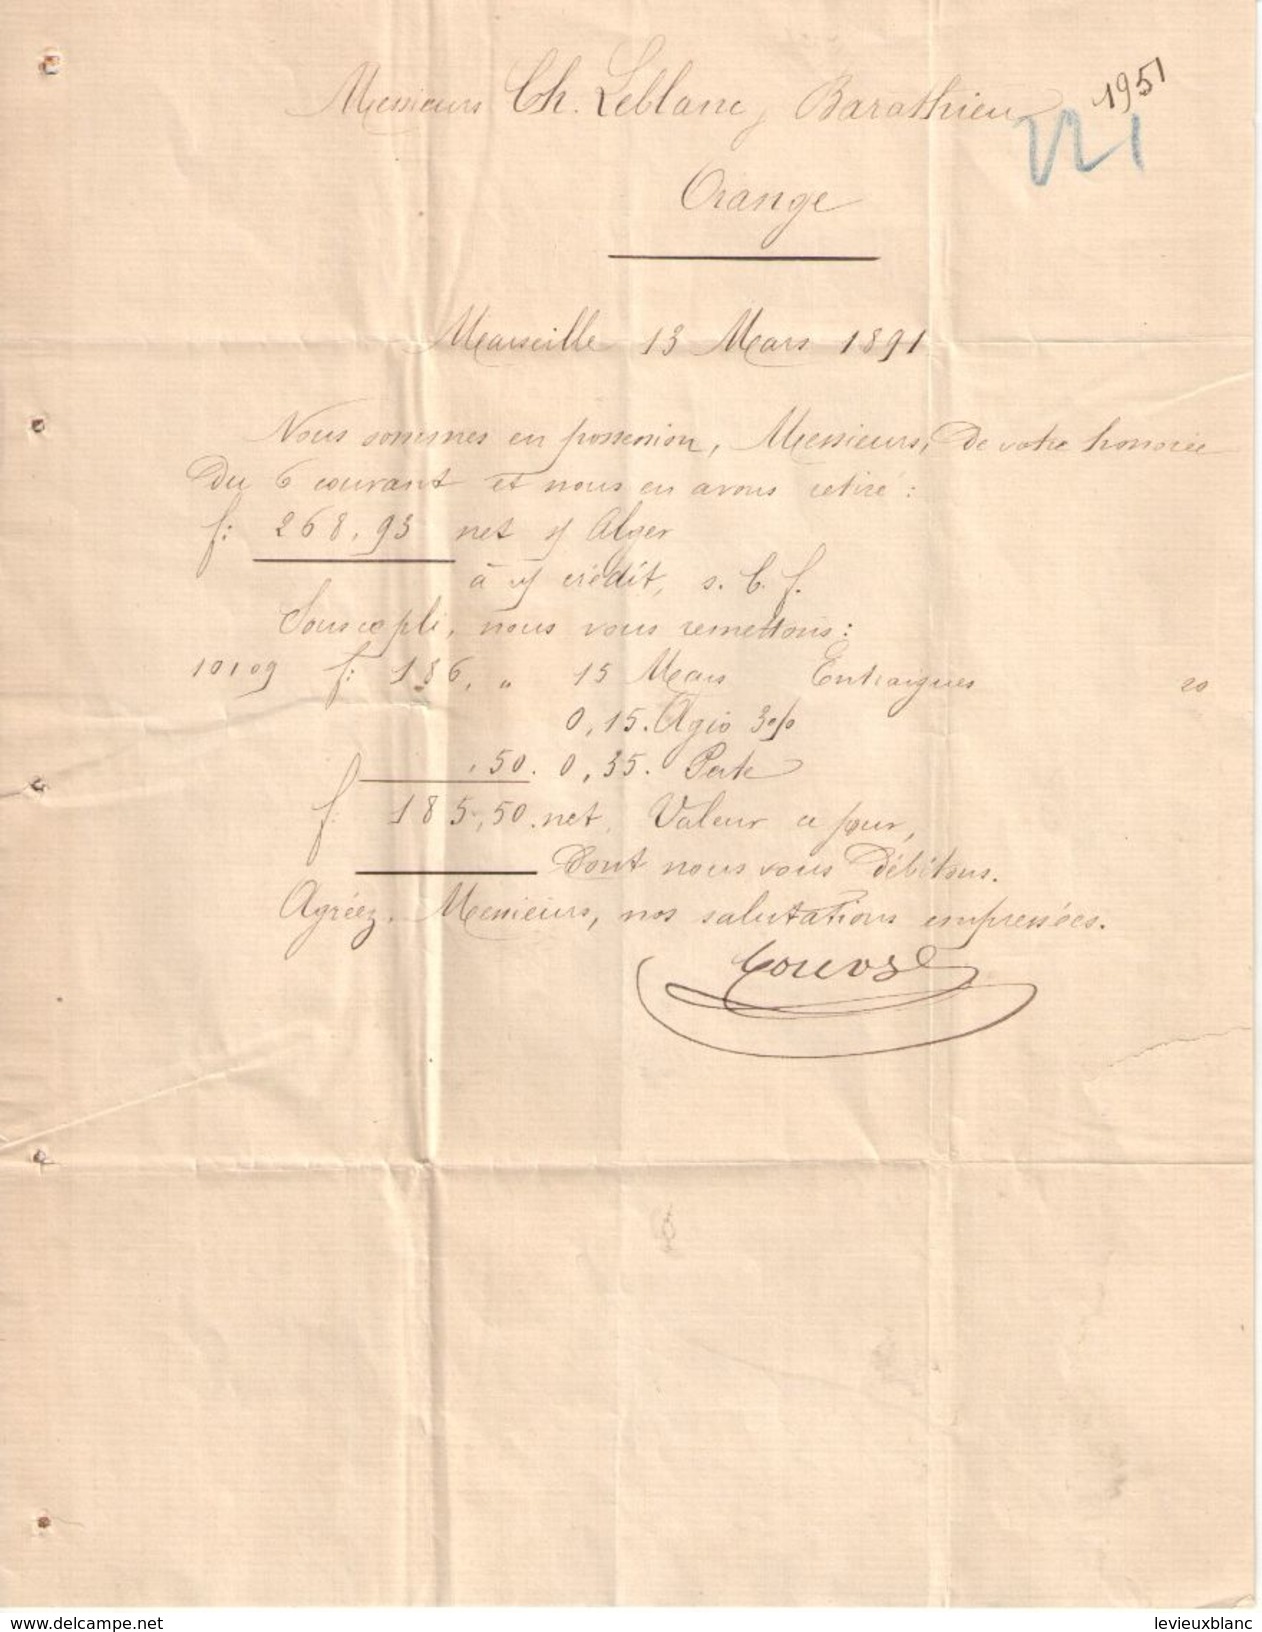 1951
Messieurs Ch. Leblanc, Barathieu
221
Orange
Marseille 13 Mars 1891
Nous sommes en possession, Messieurs, de votre honorée
du 6 courant et nous en avons retiré :
f: 268,93 net s/ Alger
à v/ crédit, s. b. f.
Sous ce pli, nous vous remettons :
10109 f: 186, " 15 Mars Entraigues 20
0,15. Agio 3 %
,50. 0,35. Perte
f: 185,50. net, Valeur ce jour,
Dont nous vous débitons.
Agréez, Messieurs, nos salutations empressées.
www.delcampe.net
levieuxblanc